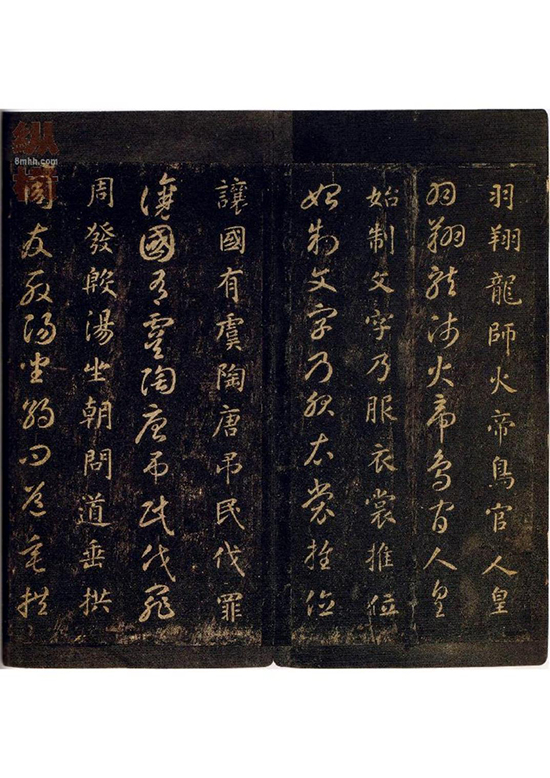 羽翔龍師火帝鳥官人皇
羽翔龍師火帝鳥官人皇
始制文字乃服衣裳推位
始制文字乃服衣裳推位
讓國有虞陶唐弔民伐罪
讓國有虞陶唐弔民伐罪
周發殷湯坐朝問道垂拱
周發殷湯坐朝問道垂拱
纵横
8mhh.com